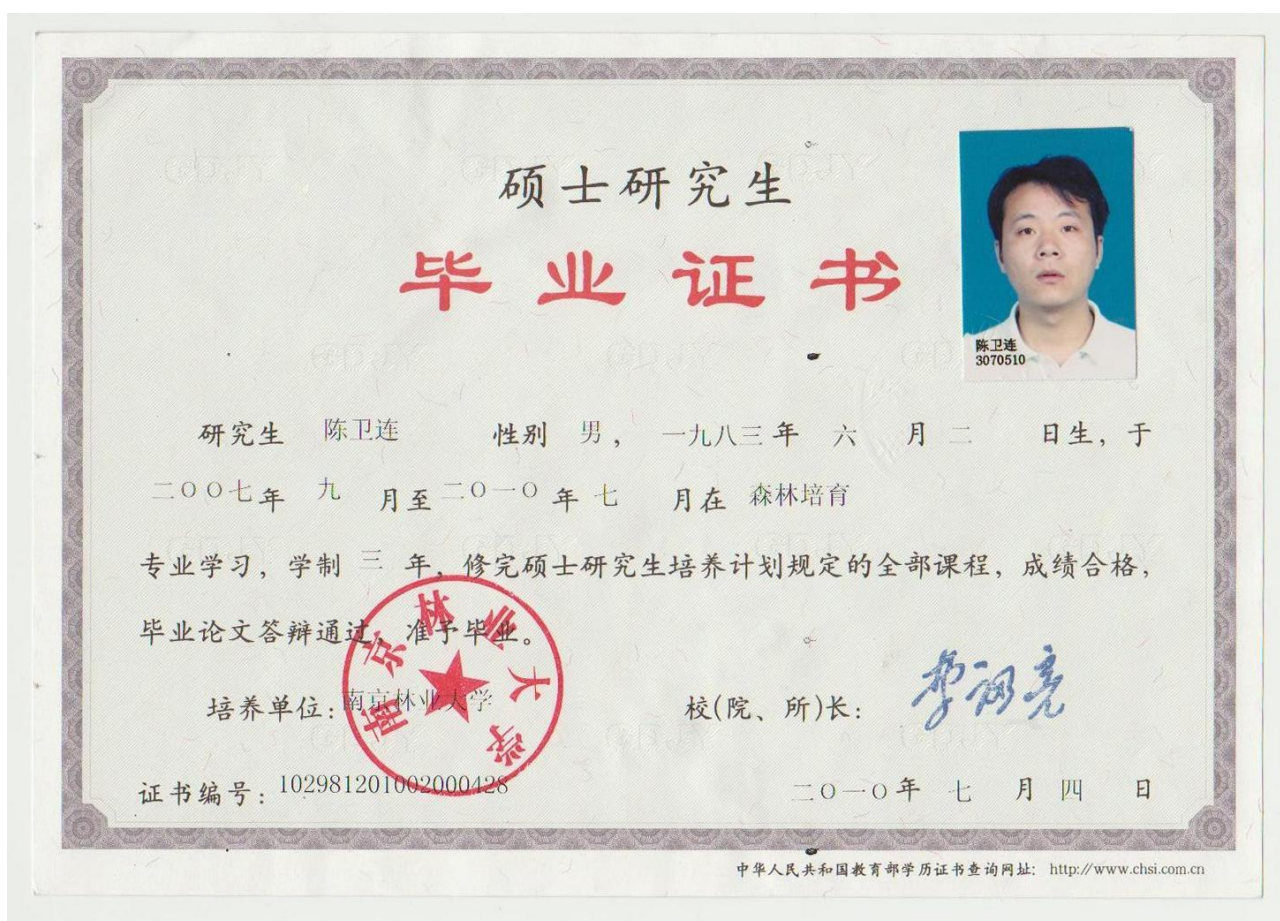 硕士研究生
毕业证书
陈卫连
3070510
研究生 陈卫连 性别 男， 一九八三年 六 月 二 日生，于
二〇〇七年 九 月至 二〇一〇 年 七 月在 森林培育
专业学习，学制 三 年，修完硕士研究生培养计划规定的全部课程，成绩合格，
毕业论文答辩通过，准予毕业。
南京林业大学
培养单位：南京林业大学 校(院、所)长：
证书编号：102981201002000428 二〇一〇年 七 月 四 日
中华人民共和国教育部学历证书查询网址： http://www.chsi.com.cn